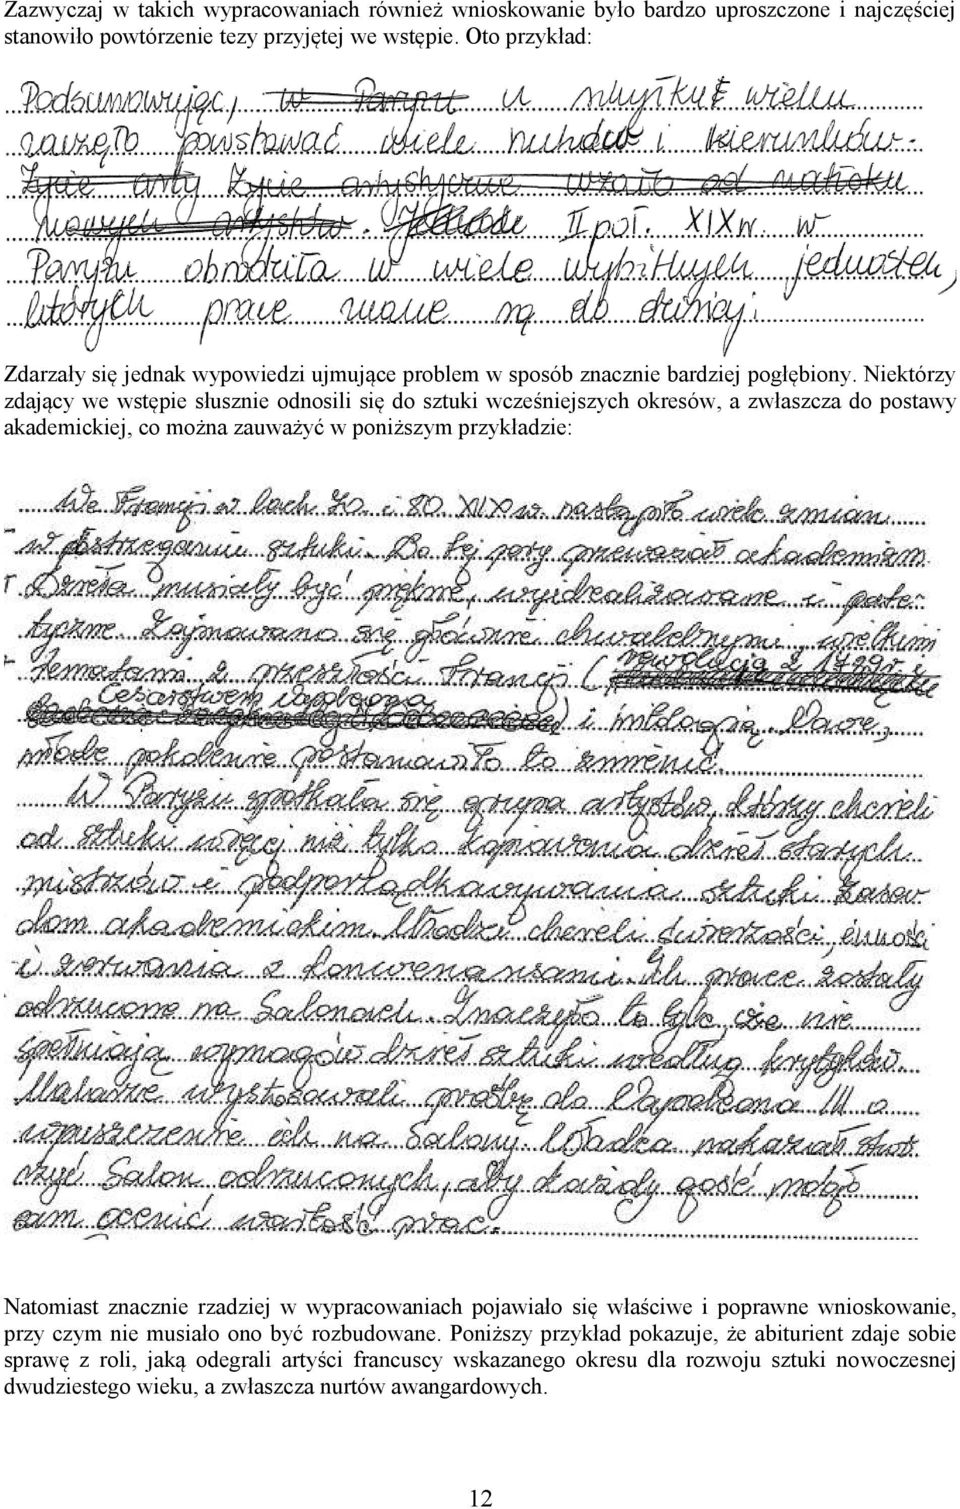 Zazwyczaj w takich wypracowaniach również wnioskowanie było bardzo uproszczone i najczęściej
stanowiło powtórzenie tezy przyjętej we wstępie. Oto przykład:
Podsumowując, w Paryżu wielu
zaczęło powstawać wiele ruchów i kierunków.
Życie arty Życie artystyczne od natłoku
nowych artystów. II poł. XIXw. w
Paryżu obrodziła w wiele wybitnych jednostek,
których prace znane są do dzisiaj;
Zdarzały się jednak wypowiedzi ujmujące problem w sposób znacznie bardziej pogłębiony. Niektórzy
zdający we wstępie słusznie odnosili się do sztuki wcześniejszych okresów, a zwłaszcza do postawy
akademickiej, co można zauważyć w poniższym przykładzie:
We Francji w latach 70 i 80 XIX w. nastąpiło wiele zmian
w postrzeganiu sztuki. Do tej pory przeważał akademizm.
Dzieła musiały być piękne, wyidealizowane i pate-
tyczne. Zajmowano się głównie chwalebnymi, wielkimi
tematami z przeszłości Francji (rewolucją z 1799r i
Cesarstwem Napoleona) i mitologią. Nowe,
młode pokolenie postanowiło to zmienić.
W Paryżu spotkała się grupa artystów, którzy chcieli
od sztuki więcej niż tylko kopiowania dzieł starych
mistrzów i podporządkowywania sztuki zasa-
dom akademickim. Młodzi chcieli świeżości, inności
i zerwania z konwenansami. Ich prace zostały
odrzucone na Salonach. Znaczyło to tyle, że nie
spełniają wymogów dzieł sztuki według krytyków.
Malarze wystosowali prośbę do Napoleona III o
wpuszczenie ich na Salony. Władca nakazał stwo-
rzyć Salon odrzuconych, aby każdy gość mógł
sam ocenić wartość prac.
Natomiast znacznie rzadziej w wypracowaniach pojawiało się właściwe i poprawne wnioskowanie,
przy czym nie musiało ono być rozbudowane. Poniższy przykład pokazuje, że abiturient zdaje sobie
sprawę z roli, jaką odegrali artyści francuscy wskazanego okresu dla rozwoju sztuki nowoczesnej
dwudziestego wieku, a zwłaszcza nurtów awangardowych.
12